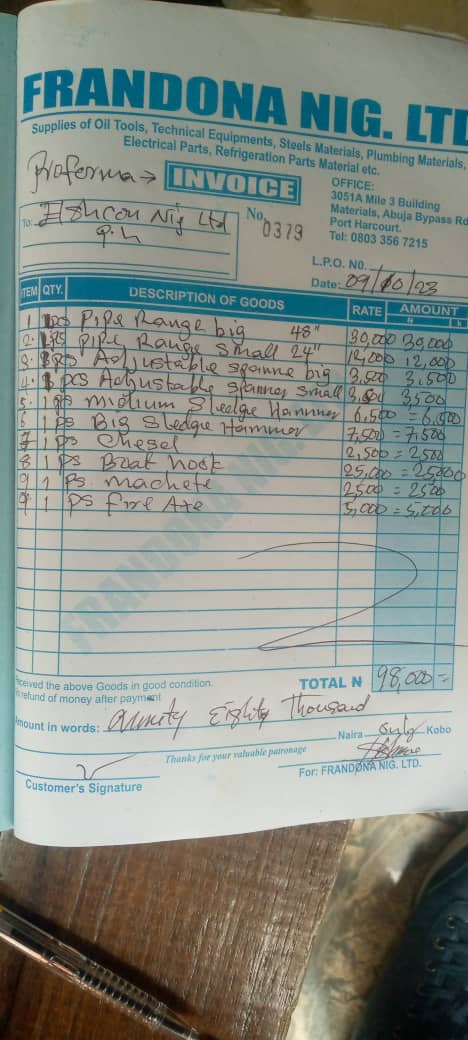 FRANDONA NIG. LTD
Supplies of Oil Tools, Technical Equipments, Steels Materials, Plumbing Materials,
Electrical Parts, Refrigeration Parts Material etc.
Proforma → INVOICE
OFFICE:
3051A Mile 3 Building
Materials, Abuja Bypass Rd
Port Harcourt.
Tel: 0803 356 7215
To: Nig Ltd
P.h
No. 0379
L.P.O. NO.
Date: 09/10/23
ITEM QTY. DESCRIPTION OF GOODS RATE AMOUNT
N k
1 pcs Pipe Range big 48" 30,000 30,000
2. ps Pipe Range Small 24" 12,000
3. ps Adjustable spanne big 3,500 3,500
4. pcs Adjustable spanner small 3,500
5. 1 ps midium Sledge Hammer 6,500 = 6,500
6 1 ps Big Sledge Hammer 7,500 = 7,500
7 1 ps Chesel 2,500 = 2,500
8 1 Ps Boat hook 25,000 = 25,000
9 1 Ps. machete 2500 = 2500
9 1 ps fire Axe 5,000 = 5,000
Received the above Goods in good condition.
No refund of money after payment
TOTAL N 98,000 =
Amount in words: Eighty Thousand
Naira Kobo
Thanks for your valuable patronage
Customer's Signature
For: FRANDONA NIG. LTD.
FRANDONA NIG.